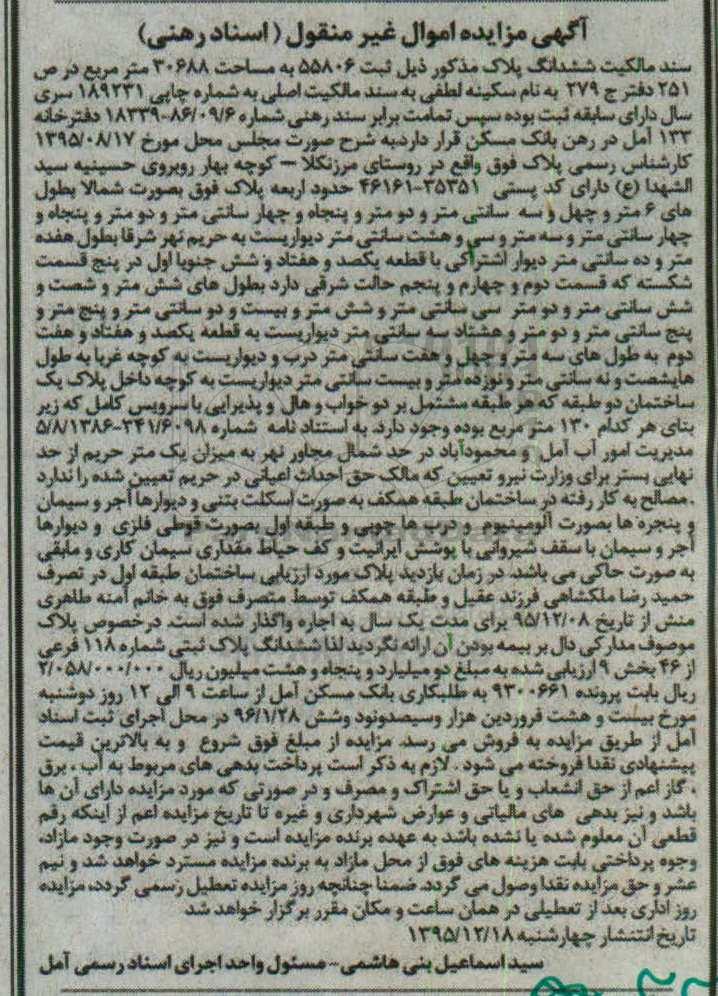 آگهی مزایده اموال غیر منقول (اسناد رهنی)
سند مالکیت ششدانگ پلاک مذکور ذیل ثبت ۵۵۸۰۶ به مساحت ۳۰۶٫۸۸ متر مربع در ص
۲۵۱ دفتر ج ۲۷۹ به نام سکینه لطفی به سند مالکیت اصلی به شماره چاپی ۱۸۹۲۳۱ سری
سال دارای سابقه ثبت بوده سپس تمامت برابر سند رهنی شماره ۱۸۳۳۹-۸۶/۰۹/۶ دفترخانه
۱۳۳ آمل در رهن بانک مسکن قرار دارد.به شرح صورت مجلس محل مورخ ۱۳۹۵/۰۸/۱۷
کارشناس رسمی پلاک فوق واقع در روستای مرزنکلا – کوچه بهار روبروی حسینیه سید
الشهدا (ع) دارای کد پستی ۳۵۳۵۱-۴۶۱۶۱ حدود اربعه پلاک فوق بصورت شمالا بطول
های ۶ متر و چهل و سه سانتی متر و دو متر و پنجاه و چهار سانتی متر و دو متر و پنجاه و
چهار سانتی متر و سه متر و سی و هشت سانتی متر دیواریست به حریم نهر شرقا بطول هفده
متر و ده سانتی متر دیوار اشتراکی با قطعه یکصد و هفتاد و شش جنوبا اول در پنج قسمت
شکسته که قسمت دوم و چهارم و پنجم حالت شرقی دارد بطول های شش متر و شصت و
شش سانتی متر و دو متر سی سانتی متر و شش متر و بیست و دو سانتی متر و پنج متر و
پنج سانتی متر و دو متر و هشتاد سه سانتی متر دیواریست به قطعه یکصد و هفتاد و هفت
دوم به طول های سه متر و چهل و هفت سانتی متر درب و دیواریست به کوچه غربا به طول
هایشصت و نه سانتی متر و نوزده متر و بیست سانتی متر دیواریست به کوچه داخل پلاک یک
ساختمان دو طبقه که هر طبقه مشتمل بر دو خواب و هال و پذیرایی با سرویس کامل که زیر
بنای هر کدام ۱۳۰ متر مربع بوده وجود دارد. به استناد نامه شماره ۳۴۱/۶۰۹۸-۵/۸/۱۳۸۶
مدیریت امور آب آمل و محمودآباد در حد شمال مجاور نهر به میزان یک متر حریم از حد
نهایی بستر برای وزارت نیرو تعیین که مالک حق احداث اعیانی در حریم تعیین شده را ندارد
.مصالح به کار رفته در ساختمان طبقه همکف به صورت اسکلت بتنی و دیوارها آجر و سیمان
و پنجره ها بصورت آلومینیوم و درب ها چوبی و طبقه اول بصورت قوطی فلزی و دیوارها
آجر و سیمان با سقف شیروانی با پوشش ایرانیت و کف حیاط مقداری سیمان کاری و مابقی
به صورت خاکی می باشد. در زمان بازدید پلاک مورد ارزیابی ساختمان طبقه اول در تصرف
حمید رضا ملکشاهی فرزند عقیل و طبقه همکف توسط متصرف فوق به خانم آمنه طاهری
منش از تاریخ ۹۵/۱۲/۰۸ برای مدت یک سال به اجاره واگذار شده است. درخصوص پلاک
موصوف مدارکی دال بر بیمه بودن آن ارائه نگردید لذا ششدانگ پلاک ثبتی شماره ۱۱۸ فرعی
از ۴۶ بخش ۹ ارزیابی شده به مبلغ دو میلیارد و پنجاه و هشت میلیون ریال ۲/۰۵۸/۰۰۰/۰۰۰
ریال بابت پرونده ۹۳۰۰۶۶۱ به طلبکاری بانک مسکن آمل از ساعت ۹ الی ۱۲ روز دوشنبه
مورخ بیست و هشت فروردین هزار وسیصدونود وشش ۹۶/۱/۲۸ در محل اجرای ثبت اسناد
آمل از طریق مزایده به فروش می رسد. مزایده از مبلغ فوق شروع و به بالاترین قیمت
پیشنهادی نقدا فروخته می شود . لازم به ذکر است پرداخت بدهی های مربوط به آب ، برق
، گاز اعم از حق انشعاب و یا حق اشتراک و مصرف و در صورتی که مورد مزایده دارای آن ها
باشد و نیز بدهی های مالیاتی و عوارض شهرداری و غیره تا تاریخ مزایده اعم از اینکه رقم
قطعی آن معلوم شده یا نشده باشد به عهده برنده مزایده است و نیز در صورت وجود مازاد،
وجوه پرداختی بابت هزینه های فوق از محل مازاد به برنده مزایده مسترد خواهد شد و نیم
عشر و حق مزایده نقدا وصول می گردد. ضمنا چنانچه روز مزایده تعطیل رسمی گردد، مزایده
روز اداری بعد از تعطیلی در همان ساعت و مکان مقرر برگزار خواهد شد
تاریخ انتشار چهارشنبه ۱۳۹۵/۱۲/۱۸
سید اسماعیل بنی هاشمی– مسئول واحد اجرای اسناد رسمی آمل